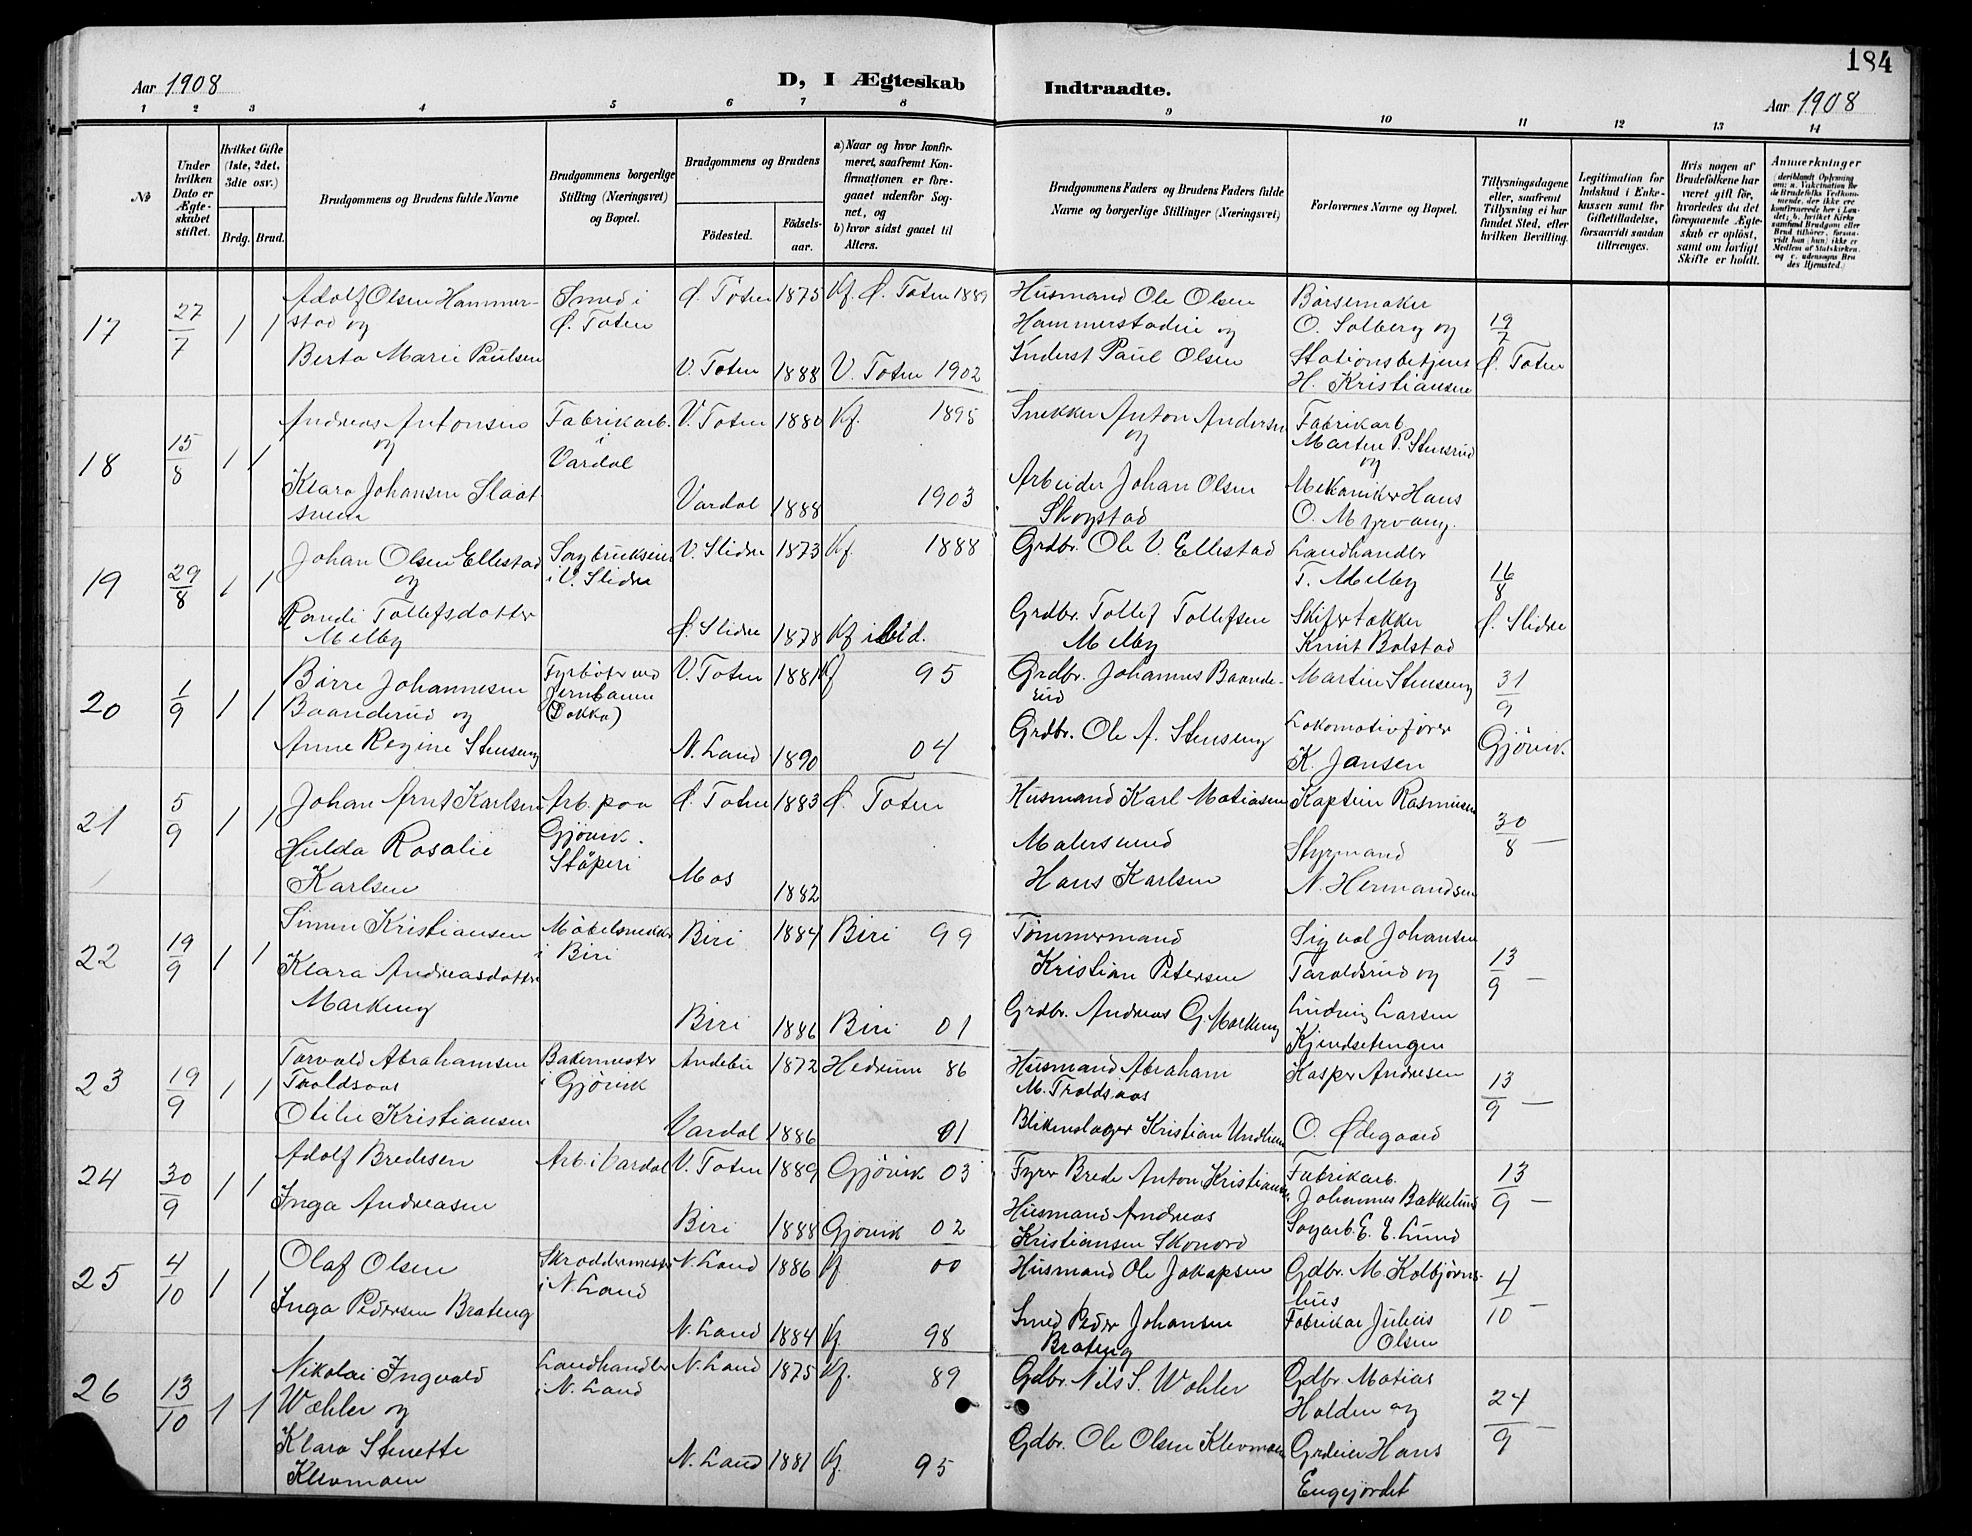 184
Aar 1908
D, I Ægteskab Indtraadte.
Aar 1908
1 2 3 4 5 6 7 8 9 10 11 12 13 14
No
Under hvilken Dato er Ægteskabet stiftet.
Hvilket Gifte (1ste, 2det, 3die osv.)
Brdg. Brud.
Brudgommens og Brudens fulde Navne
Brudgommens borgerlige Stilling (Næringsvei) og Bopæl.
Brudgommens og Brudens
Fødested. Fødselsaar.
a) Naar og hvor konfirmeret, saafremt Konfirmationen er foregaaet udenfor Sognet, og
b) hvor sidst gaaet til Alters.
Brudgommens Faders og Brudens Faders fulde Navne og borgerlige Stillinger (Næringsvei)
Forlovernes Navne og Bopæl.
Tillysningsdagene eller, saafremt Tillysning ei har fundet Sted, efter hvilken Bevilling.
Legitimation for Indskud i Enkekassen samt for Giftetilladelse, forsaavidt saadan tiltrænges.
Hvis nogen af Brudefolkene har været gift før, hvorledes du det foregaaende Ægteskab er opløst, samt om lovligt Skifte er holdt.
Anmærkninger
17 27/7 1 1
Adolf Olsen Hammerstad og
Berta Marie Paulsen
Smed i
Ø. Toten
Ø. Toten 1875 Kf. Ø. Toten 1889
V. Toten 1888 V. Toten 1902
Husmand Ole Olsen
Hammerstadeie og
Inderst Paul Olsen
Børsemaker
O. Solberg og
Stationsbetjent
H. Kristiansen
19/7
Ø. Toten
18 15/8 1 1
Andreas Antonsen
og
Klara Johansen Slaatsveen
Fabrikarb.
i
Vardal
V. Toten 1880 Kf. 1895
Vardal 1888 1903
Snekker Anton Andersen
og
Arbeider Johan Olsen
Skogstad
Fabrikarb
Martin P. Stensrud
og
Mekaniker Hans
O. Myrvang.
19 29/8 1 1
Johan Olsen Ellestad
og
Randi Tollefsdotter
Melby
Sagbruksein
i V. Slidre
V. Slidre 1873 Kf. 1888
Ø. Slidre 1878 Kf ibid.
Grdbr. Ole V. Ellestad
Grdbr. Tollef Tollefsen
Melby
Landhandler
T. Melby
Skifertækker
Knut Bolstad
16/8
Ø. Slidre
20 1/9 1 1
Børre Johannesen
Baanderud og
Anne Regine Stenseng
Fyrbøter ved
Jernbanen
(Dokka)
V. Toten 1881 Kf 95
N. Land 1890 04
Grdbr. Johannes Baanderud
Grdbr. Ole A. Stenseng
Martin Stenseng
Lokomotivfører
K. Jansen
31/9
Gjøvik.
21 5/9 1 1
Johan Arnt Karlsen
Hulda Rosalie
Karlsen
Arb. paa
Gjøvik.
Støperi
Ø. Toten 1883 Ø. Toten
Mos 1882
Husmand Karl Matiasen
Malersund
Hans Karlsen
Kaptein Rasmusen
Styrmand
N. Hermandsen
30/8 —
22 19/9 1 1
Simen Kristiansen
Klara Andreasdotter
Markeng
Møbelsnekker
i Biri
Biri 1884 Biri 99
Biri 1886 Biri 01
Tømmermand
Kristian Petersen
Grdbr. Andreas G. Markeng
Sigval Johansen
Taraldsrud og
Ludvig Larsen
Kjendsetengen
13/9 —
23 19/9 1 1
Torvald Abrahamsen
Troldsaas
Otilie Kristiansen
Bakermester
i Gjøvik
Andebu 1872 Hedrum 86
Vardal 1886 01
Husmand Abraham
M. Troldsaas
Blikenslager Kristian Undheim
Kasper Andresen
O. Ødegaard
13/9 —
24 30/9 1 1
Adolf Bredesen
Inga Andreasen
Arb. i Vardal
V. Toten 1889 Gjøvik 03
Biri 1888 Gjøvik 02
Fyrv Brede Anton Kristiansen
Husmand Andreas
Kristiansen Skonord
Fabrikarb.
Johannes Bakkelund
Sagarb. E. E. Lund
13/9 —
25 4/10 1 1
Olaf Olsen
Inga Pedersen Brateng
Skræddermester
i N. Land
N. Land 1886 Kf 00
N. Land 1884 Kf 98
Husmand Ole Jakopsen
Smed Peder Johansen
Brateng
Gdbr. M. Kolbjørnshus
Fabrikar Julius
Olsen
4/10 —
26 13/10 1 1
Nikolai Ingvald
Wæhler og
Klara Stenette
Klevmoen
Landhandler
i N. Land
N. Land 1875 Kf. 89
N. Land 1881 Kf. 95
Gdbr. Nils S. Wøhler
Gdbr. Ole Olsen Klevmoen
Gdbr Matias
Holden og
Grdeier Hans
Engejordet
24/9 —